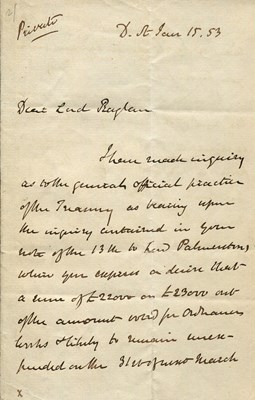 2/
Private
D. St Jan 15. 53
Dear Lord Raglan
I have made inquiry
as to the general official practice
of the Treasury as bearing upon
the inquiry contained in your
note of the 13th to Lord Palmerston,
where you express a desire that
a sume of £22000 or £23000 out
of the amount voted for Ordnance
works & likely to remain unex-
pended on the 31st of next March
x